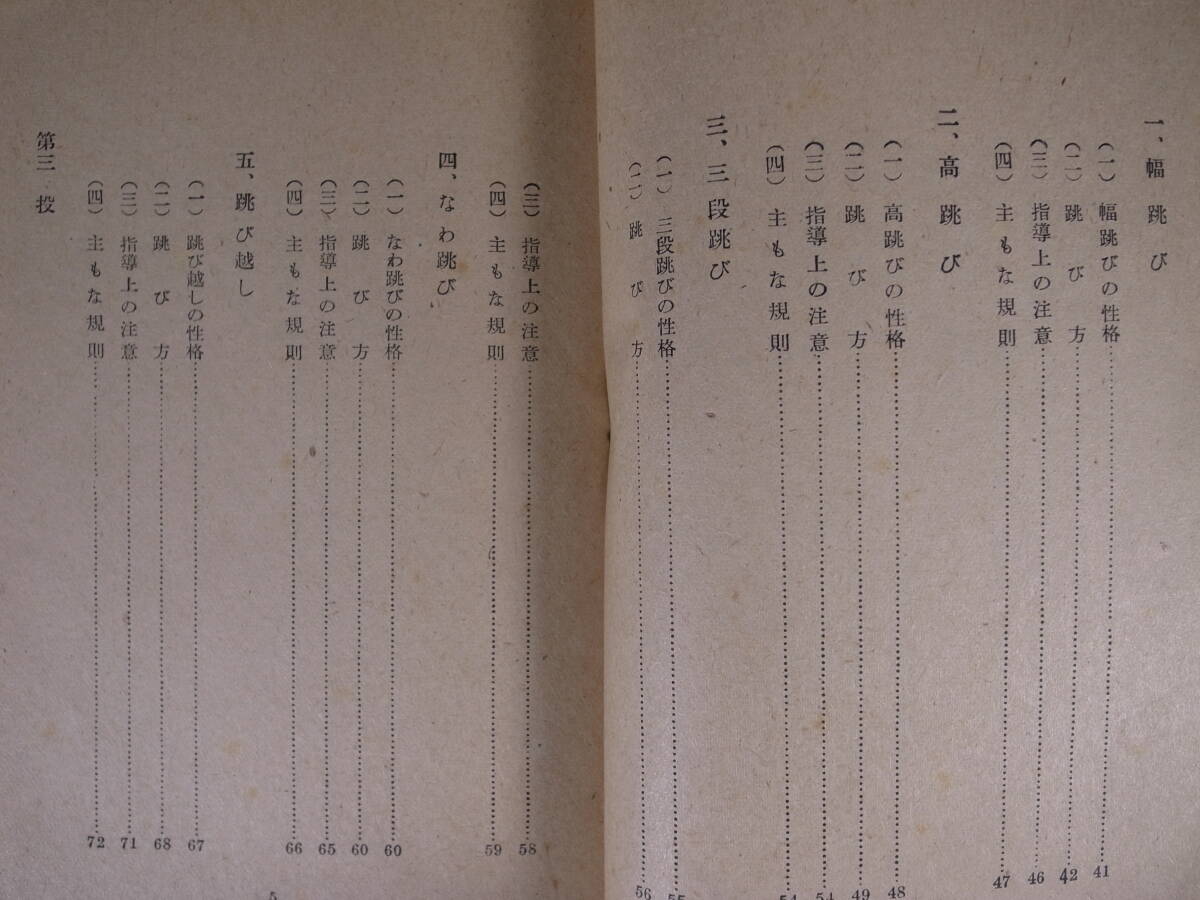 一、幅跳び
（一）幅跳びの性格……41
（二）跳び方……42
（三）指導上の注意……46
（四）主もな規則……47
二、高跳び
（一）高跳びの性格……48
（二）跳び方……49
（三）指導上の注意……54
（四）主もな規則……54
三、三段跳び
（一）三段跳びの性格……55
（二）跳び方……56
（三）指導上の注意……58
（四）主もな規則……59
四、なわ跳び
（一）なわ跳びの性格……60
（二）跳び方……60
（三）指導上の注意……65
（四）主もな規則……66
五、跳び越し
（一）跳び越しの性格……67
（二）跳び方……68
（三）指導上の注意……71
（四）主もな規則……72
第三 投
5